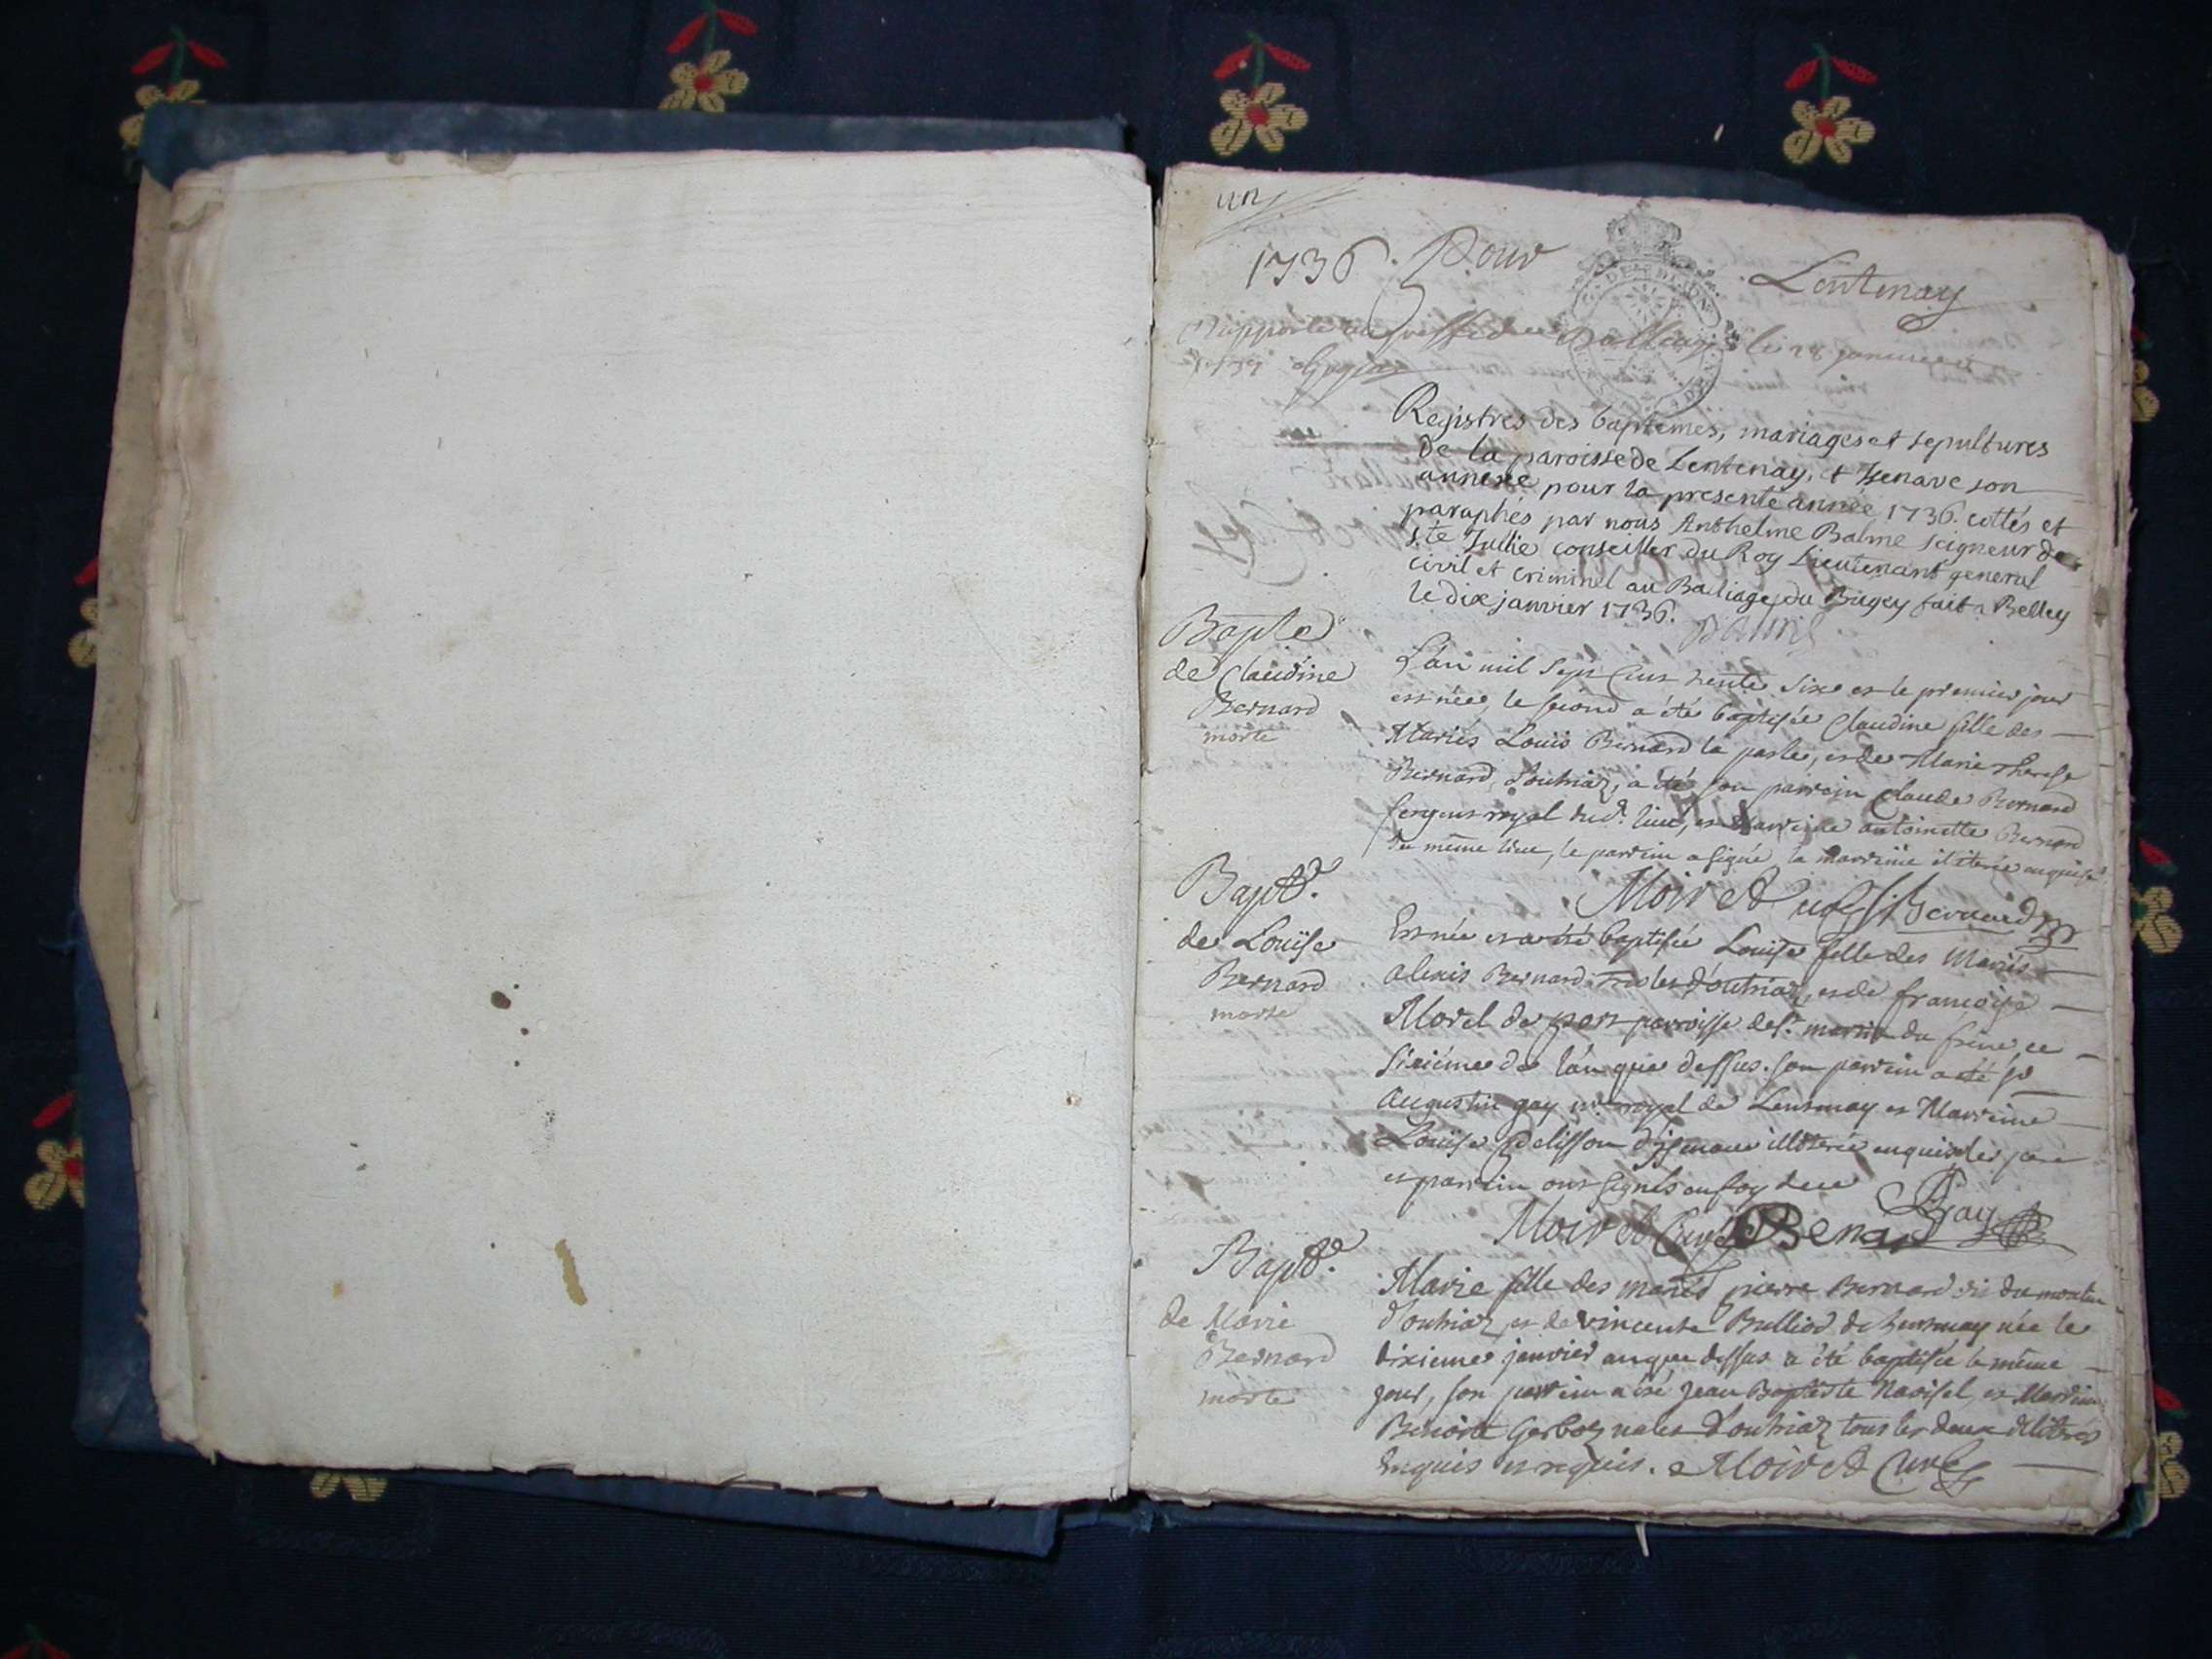 un
1736. Pour Lentenay
Rapporté au greffe de Belley le 28 janvier
Registres des baptemes, mariages et sepultures
de la paroisse de Lentenay, et Izenave son
annexe pour la presente année 1736. cottés et
paraphés par nous Anthelme Balme seigneur de
Ste Jullie conseiller du Roy Lieutenant general
civil et criminel au Bailiage du Bugey fait a Belley
le dix janvier 1736.
Bapte
de Claudine
Bernard
morte
L'an mil sept cens trente six et le premier jour
est née, le second a été baptisée Claudine fille des
Mariés Louis Bernard la parle, et de Marie Therese
Bernard d'outriaz, a été son parrein Claude Bernard
sergent royal dud. lieu, et Marreine antoinette Bernard
du même lieu, le parrein a signé, la marreine iliterée enquise
Moiret curé Bernard
Bapt.
de Louise
Bernard
morte
Est née et a été baptisée Louise fille des Mariés
alexis Bernard d'outriaz, et de françoise
Morel de port parroisse de St. martin du frene ce
sixiéme de l'an que dessus. son parrein a été sr
Augustin gay royal de Lentenay et Marreine
Louise pelisson d'izenave illiterée enquise les pere
et parrein ont signés en foy de ce
Gay
Moiret Curé Benar
Bapt.
de Marie
Bernard
morte
Marie fille des mariés pierre Bernard
d'outriaz, et de vincente Bulliod de Lentenay née le
dixieme janvier an que dessus a été baptisée le même
jour, son parrein a été Jean Baptiste et Marreine
d'outriaz tous les deux illiterés
Enquis et requis. Moiret Curé